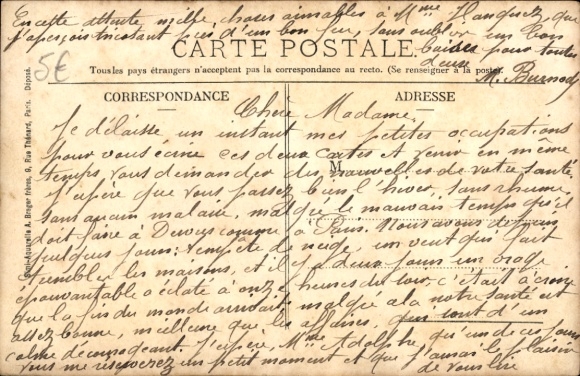 En cette attente, mille choses aimables à Mme Hanquez, que
j'aperçois tricotant près d'un bon feu, sans oublier un bon
baiser pour toutes
deux
M. Burnod
CARTE POSTALE
5€
Tous les pays étrangers n'acceptent pas la correspondance au recto. (Se renseigner à la poste)
CORRESPONDANCE
ADRESSE
A. Breger frères, 9, Rue Thénard, Paris. Déposé.
Chère Madame,
Je délaisse un instant mes petites occupations
pour vous écrire ces deux cartes et venir en même
temps vous demander des nouvelles de votre santé
J'espère que vous passez bien l'hiver, sans rhume,
sans aucun malaise, malgré le mauvais temps qu'il
doit faire à comme à Paris. Nous avons depuis
quelques jours: tempête de neige, un vent qui fait
trembler les maisons, et il y a deux jours un orage
épouvantable a éclaté à onze heures du soir, c'était à croire
que la fin du monde arrivait, malgré cela notre santé est
assez bonne, meilleure que les affaires, qui sont d'un
calme décourageant. J'espère, Mme Adolphe, qu'un de ces jours
vous me réserverez un petit moment et que j'aurai le plaisir
de vous lire